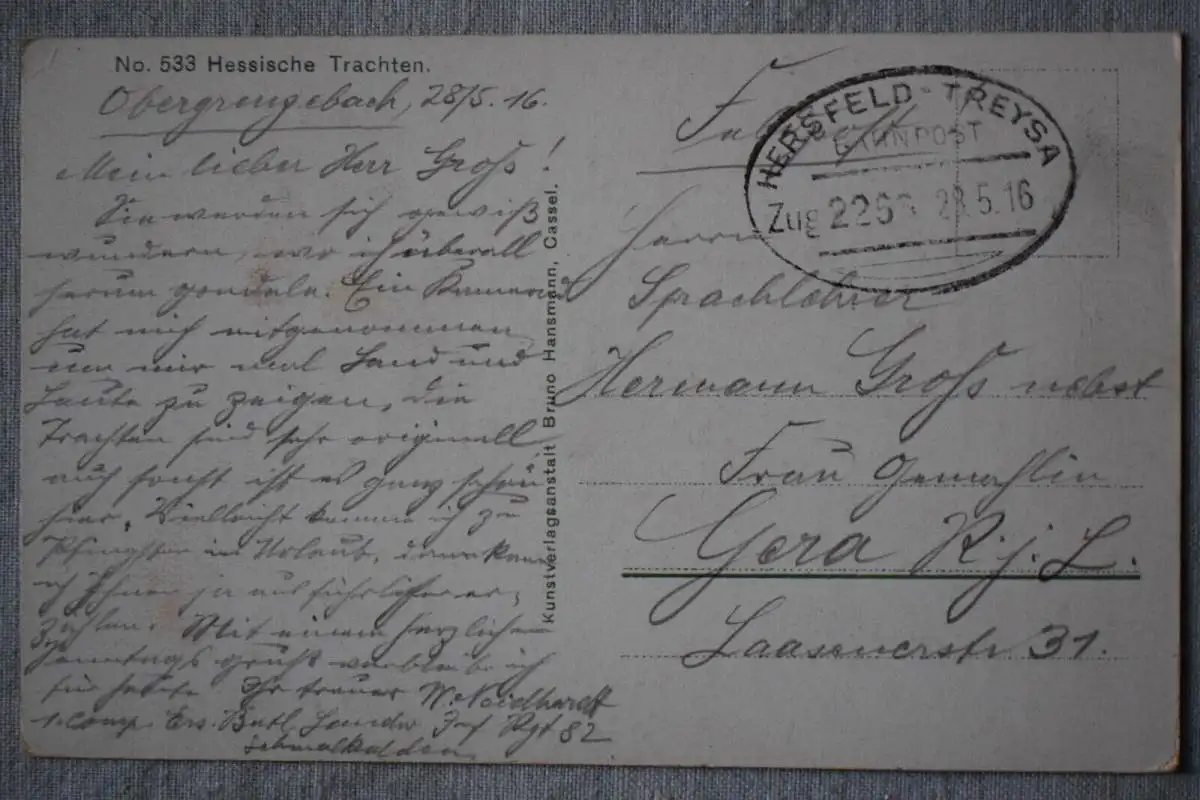 No. 533 Hessische Trachten.
Obergrenzebach, 28/5. 16.
Mein lieber Herr Groß!
Sie werden sich gewiß
wundern, wo ich überall
herum gondele. Ein Kamerad
hat mich mitgenommen
um mir mal Land und
Leute zu zeigen, die
Trachten sind sehr originell
auch sonst ist es ganz schön
hier. Vielleicht komme ich zu
Pfingsten in Urlaub, dann kann
ich Ihnen ja ausführlicher er-
zählen. Mit einem herzlichen
Sonntagsgruß verbleibe ich
für heute Ihr treuer W. Neidhardt
1. Comp. Ers. Batl. Landw. Inf. Rgt 82
Schmalkalden
Kunstverlagsanstalt Bruno Hansmann, Cassel.
HERSFELD-TREYSA
BAHNPOST
Zug 226 28.5.16
Herrn
Sprachlehrer
Hermann Groß nebst
Frau Gemahlin
Gera R. j. L.
Laassnerstr 31.